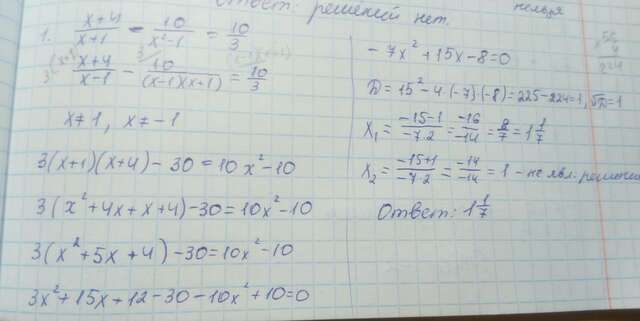 Ответ: решений нет.
нельзя
1. \frac{x+4}{x+1} - \frac{10}{x²-1} = \frac{10}{3}
\frac{x+4}{x-1} - \frac{10}{(x-1)(x+1)} = \frac{10}{3}
x≠1, x≠-1
3(x+1)(x+4)-30=10x²-10
3(x²+4x+x+4)-30=10x²-10
3(x²+5x+4)-30=10x²-10
3x²+15x+12-30-10x²+10=0
-7x²+15x-8=0
D=15²-4·(-7)·(-8)=225-224=1, √D=1
x₁=\frac{-15-1}{-7·2}=\frac{-16}{-14}=\frac{8}{7}=1\frac{1}{7}
x₂=\frac{-15+1}{-7·2}=\frac{-14}{-14}=1-не явл. решением
Ответ: 1\frac{1}{7}